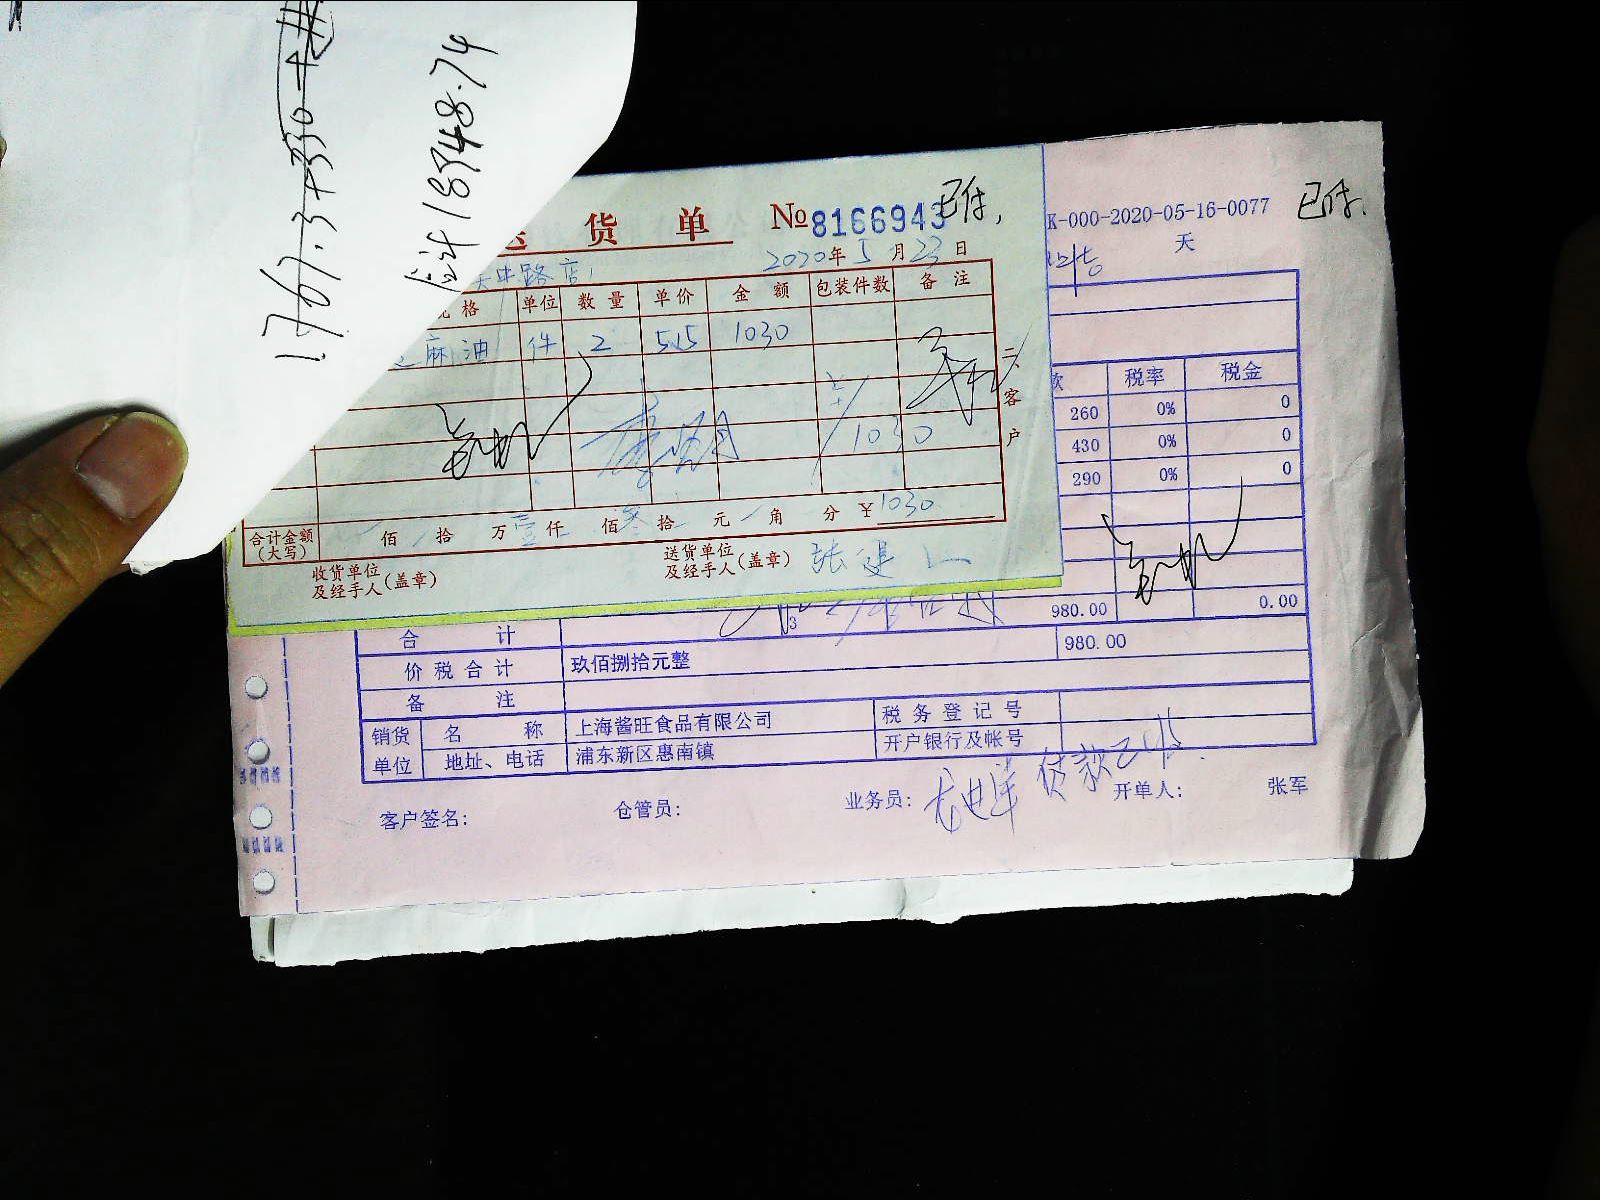 1767.3+330
总计18348.74
送货单 №8166943 已付,
2020年5月23日
中路店
规格 单位 数量 单价 金额 包装件数 备注
芝麻油 件 2 515 1030
1030
二客户
合计金额(大写) 佰 拾 万壹仟 佰叁拾 元 角 分 ¥1030
收货单位及经手人(盖章)
送货单位及经手人(盖章) 张建
K-000-2020-05-16-0077 已付.
天
款 税率 税金
260 0% 0
430 0% 0
290 0% 0
合计 3 980.00 0.00
价税合计 玖佰捌拾元整 980.00
备注
销货单位 名称 上海酱旺食品有限公司 税务登记号
地址、电话 浦东新区惠南镇 开户银行及帐号
付款已收
客户签名: 仓管员: 业务员: 开单人: 张军